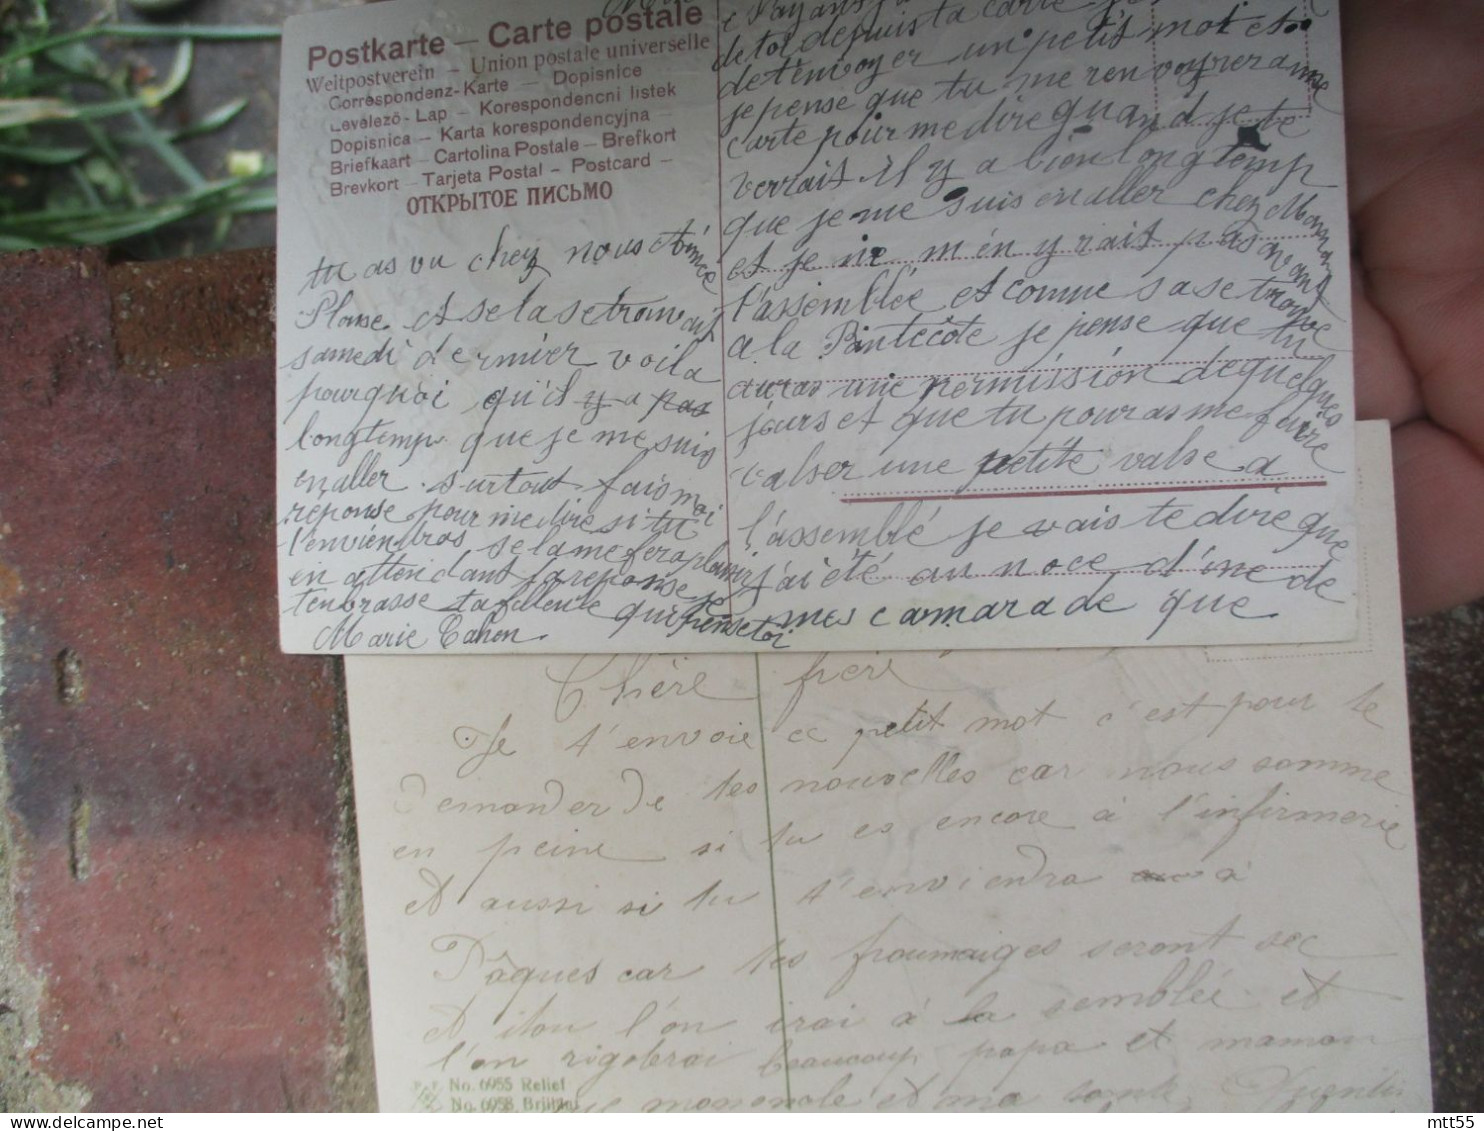 Postkarte — Carte postale
Weltpostverein — Union postale universelle
Correspondenz-Karte — Dopisnice
Levelező-Lap — Korespondencni listek
Dopisnica — Karta korespondencyjna —
Briefkaart — Cartolina Postale — Brefkort
Brevkort — Tarjeta Postal — Postcard —
ОТКРЫТОЕ ПИСЬМО
de toi depuis ta carte je
de t'envoyer un petit mot et
je pense que tu me renvoyrera une
carte pour me dire quand je te
verrait il y a bien longtemp
que je me suis en aller chez Maman
et je ne m'en y rait pas avant
l'assemblée et comme sa se trouve
a la Pantecôte je pense que tu
auras une permission de quelques
jours et que tu pouras me faire
valser une petite valse a
l'assemblé je vais te dire que
j'ai été au noce d'une de
mes camarade que
tu as vu chez nous
et se la se trouvait
samedi dernier voila
pourquoi qu'il y a pas
longtemp que je me suis
en aller surtout fais moi
réponse pour me dire si tu
t'enviendras sela me fera plaisir
en attendant ta reponse je
t'enbrasse ta filleule qui pense toi
Marie Cahen
Chère frère
Je t'envoie ce petit mot c'est pour te
demander de tes nouvelles car nous somme
en peine si tu es encore à l'infirmerie
et aussi si tu t'enviendra à
Pâques car tes froumaiges seront sec
et l'on irai à la semblée et
l'on rigolerai beaucoup papa et maman
No. 6955 Relief
No. 6958 Brillant
et ma